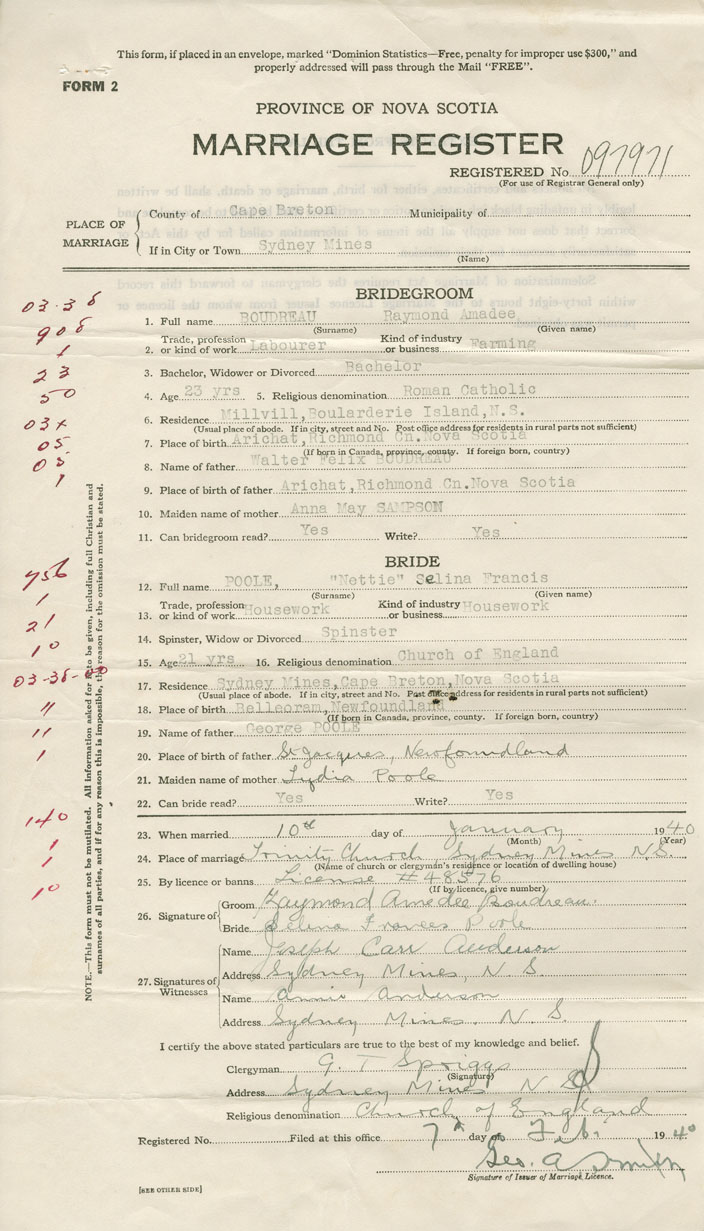 This form, if placed in an envelope, marked "Dominion Statistics—Free, penalty for improper use $300," and
properly addressed will pass through the Mail "FREE".
FORM 2
PROVINCE OF NOVA SCOTIA
MARRIAGE REGISTER
REGISTERED No. 097971
(For use of Registrar General only)
PLACE OF MARRIAGE
County of Cape Breton Municipality of
If in City or Town Sydney Mines
(Name)
BRIDEGROOM
1. Full name BOUDREAU Raymond Amadee
(Surname) (Given name)
2. Trade, profession or kind of work Labourer Kind of industry or business Farming
3. Bachelor, Widower or Divorced Bachelor
4. Age 23 yrs 5. Religious denomination Roman Catholic
6. Residence Millvill,Boularderie Island,N.S.
(Usual place of abode. If in city, street and No. Post office address for residents in rural parts not sufficient)
7. Place of birth Arichat,Richmond Cn.Nova Scotia
(If born in Canada, province, county. If foreign born, country)
8. Name of father Walter Felix BOUDREAU
9. Place of birth of father Arichat,Richmond Cn.Nova Scotia
10. Maiden name of mother Anna May SAMPSON
11. Can bridegroom read? Yes Write? Yes
BRIDE
12. Full name POOLE, "Nettie" Selina Francis
(Surname) (Given name)
13. Trade, profession or kind of work Housework Kind of industry or business Housework
14. Spinster, Widow or Divorced Spinster
15. Age 21 yrs 16. Religious denomination Church of England
17. Residence Sydney Mines,Cape Breton,Nova Scotia
(Usual place of abode. If in city, street and No. Post office address for residents in rural parts not sufficient)
18. Place of birth Belleoram,Newfoundland
(If born in Canada, province, county. If foreign born, country)
19. Name of father George POOLE
20. Place of birth of father St Jacques, Newfoundland
21. Maiden name of mother Lydia Poole
22. Can bride read? Yes Write? Yes
23. When married 10th day of January 1940
(Month) (Year)
24. Place of marriage Trinity Church Sydney Mines N.S.
(Name of church or clergyman's residence or location of dwelling house)
25. By licence or banns License #48576
(If by licence, give number)
26. Signature of
Groom Raymond Amedee Boudreau.
Bride Selina Frances Poole
27. Signatures of Witnesses
Name Joseph Carr Anderson
Address Sydney Mines, N.S.
Name Annie Anderson
Address Sydney Mines, N.S.
I certify the above stated particulars are true to the best of my knowledge and belief.
Clergyman G. T Spriggs
(Signature)
Address Sydney Mines N S
Religious denomination Church of England
Registered No. Filed at this office 7th day of Feb. 1940
Geo. A Smith
Signature of Issuer of Marriage Licence.
[SEE OTHER SIDE]
NOTE.—This form must not be mutilated. All information asked for is to be given, including full Christian and
surnames of all parties, and if for any reason this is impossible, the reason for the omission must be stated.
908
1
23
50
03x
05
05
1
756
1
21
10
"
"
1
140
1
1
10